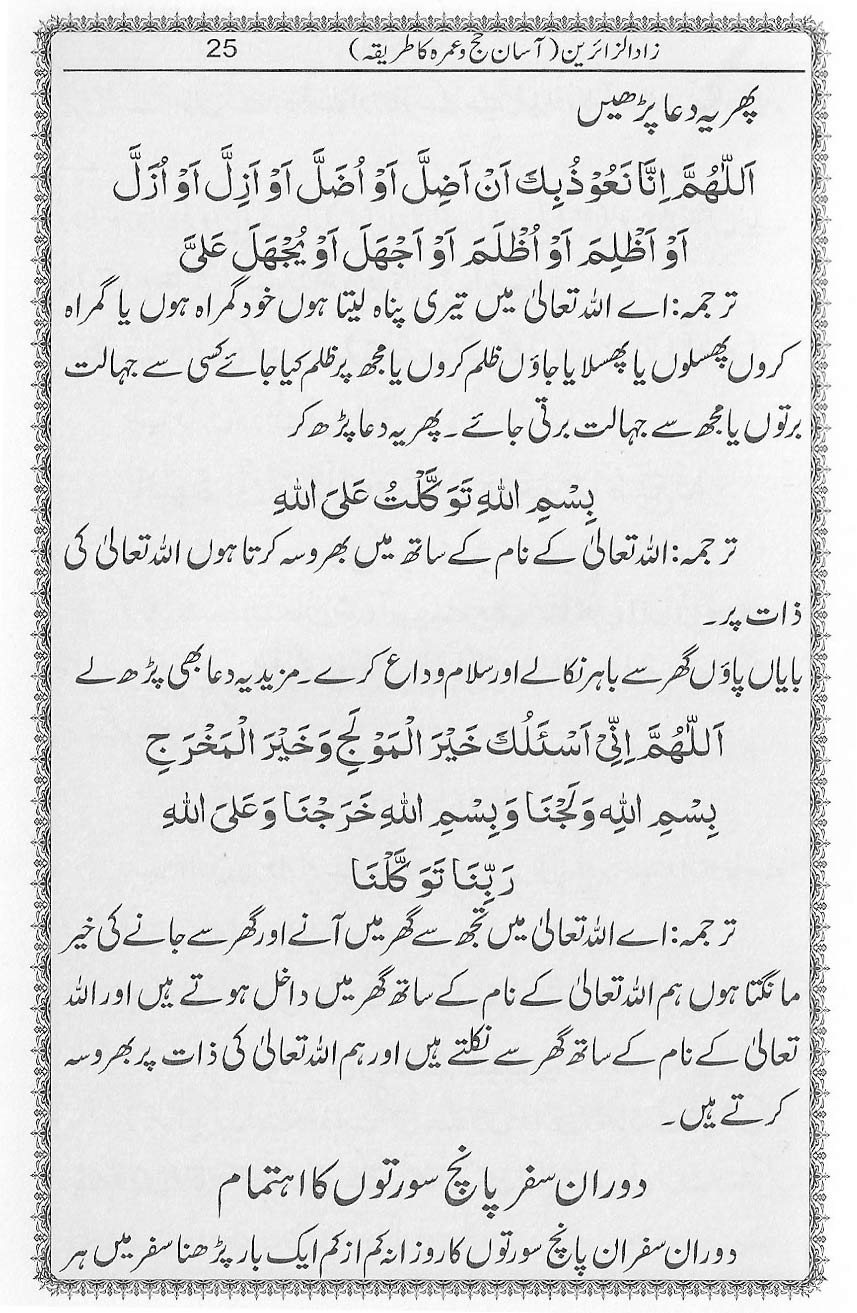 زاد الزائرین (آسان حج و عمرہ کا طریقہ) 25
پھر یہ دعا پڑھیں
اَللّٰهُمَّ اِنَّا نَعُوْذُبِكَ اَنْ اَضِلَّ اَوْ اُضَلَّ اَوْ اَزِلَّ اَوْ اُزَلَّ
اَوْ اَظْلِمَ اَوْ اُظْلَمَ اَوْ اَجْهَلَ اَوْ يُجْهَلَ عَلَىَّ
ترجمہ: اے اللہ تعالیٰ میں تیری پناہ لیتا ہوں خود گمراہ ہوں یا گمراہ
کروں پھسلوں یا پھسلایا جاؤں ظلم کروں یا مجھ پر ظلم کیا جائے کسی سے جہالت
برتوں یا مجھ سے جہالت برتی جائے۔ پھر یہ دعا پڑھ کر
بِسْمِ اللهِ تَوَكَّلْتُ عَلَى اللهِ
ترجمہ: اللہ تعالیٰ کے نام کے ساتھ میں بھروسہ کرتا ہوں اللہ تعالیٰ کی
ذات پر۔
بایاں پاؤں گھر سے باہر نکالے اور سلام وداع کرے۔ مزید یہ دعا بھی پڑھ لے
اَللّٰهُمَّ اِنِّىْ اَسْئَلُكَ خَيْرَ الْمَوْلَجِ وَخَيْرَ الْمَخْرَجِ
بِسْمِ اللهِ وَلَجْنَا وَبِسْمِ اللهِ خَرَجْنَا وَعَلَى اللهِ
رَبِّنَا تَوَكَّلْنَا
ترجمہ: اے اللہ تعالیٰ میں تجھ سے گھر میں آنے اور گھر سے جانے کی خیر
مانگتا ہوں ہم اللہ تعالیٰ کے نام کے ساتھ گھر میں داخل ہوتے ہیں اور اللہ
تعالیٰ کے نام کے ساتھ گھر سے نکلتے ہیں اور ہم اللہ تعالیٰ کی ذات پر بھروسہ
کرتے ہیں۔
دوران سفر پانچ سورتوں کا اہتمام
دوران سفر ان پانچ سورتوں کا روزانہ کم از کم ایک بار پڑھنا سفر میں ہر